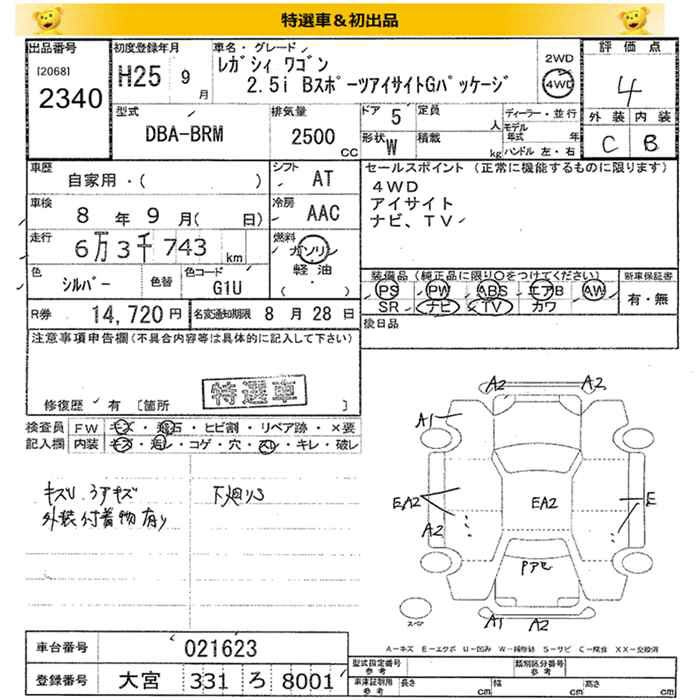 特選車＆初出品
出品番号
[2068]
2340
初度登録年月
H25 9月
車名・グレード
レガシィ ワゴン
2.5i BスポーツアイサイトGパッケージ
2WD
4WD
評価点
4
外装 内装
C B
型式
DBA-BRM
排気量
2500 CC
ドア 5
形状 W
定員 人
積載 kg
ディーラー・並行
モデル年式 年
ハンドル 左・右
車歴
自家用・( )
シフト AT
車検
8年9月( 日)
冷房 AAC
走行
6万3千743km
燃料
ガソリン
軽油
( ・ )
色
シルバー
色替
色コード
G1U
R券 14,720円
名変通知期限 8月28日
セールスポイント (正常に機能するものに限ります)
4WD
アイサイト
ナビ、TV
装備品 (純正品に限り○をつけてください)
PS PW ABS エアB AW
SR ナビ TV カワ
新車保証書
有・無
後日品
注意事項申告欄 (不具合内容等は具体的に記入して下さい)
特選車
修復歴 有 [箇所 ]
検査員記入欄
FW キズ・飛石・ヒビ割・リペア跡・×要
内装 キズ・汚レ・コゲ・穴・スレ・キレ・破レ
キズU、ウアキズ 下廻りS
外装付着物有り
A2 A2
A1
EA2
A2
EA2
E
Pアセ
スペア
A1 A2
A－キズ E－エクボ U－凹み W－補修跡 S－サビ C－腐食 XX－交換済
車台番号 021623
登録番号 大宮 331 ろ 8001
型式指定番号 参考
類別区分番号 参考
車庫証明用 参考 長さ cm 幅 cm 高さ cm